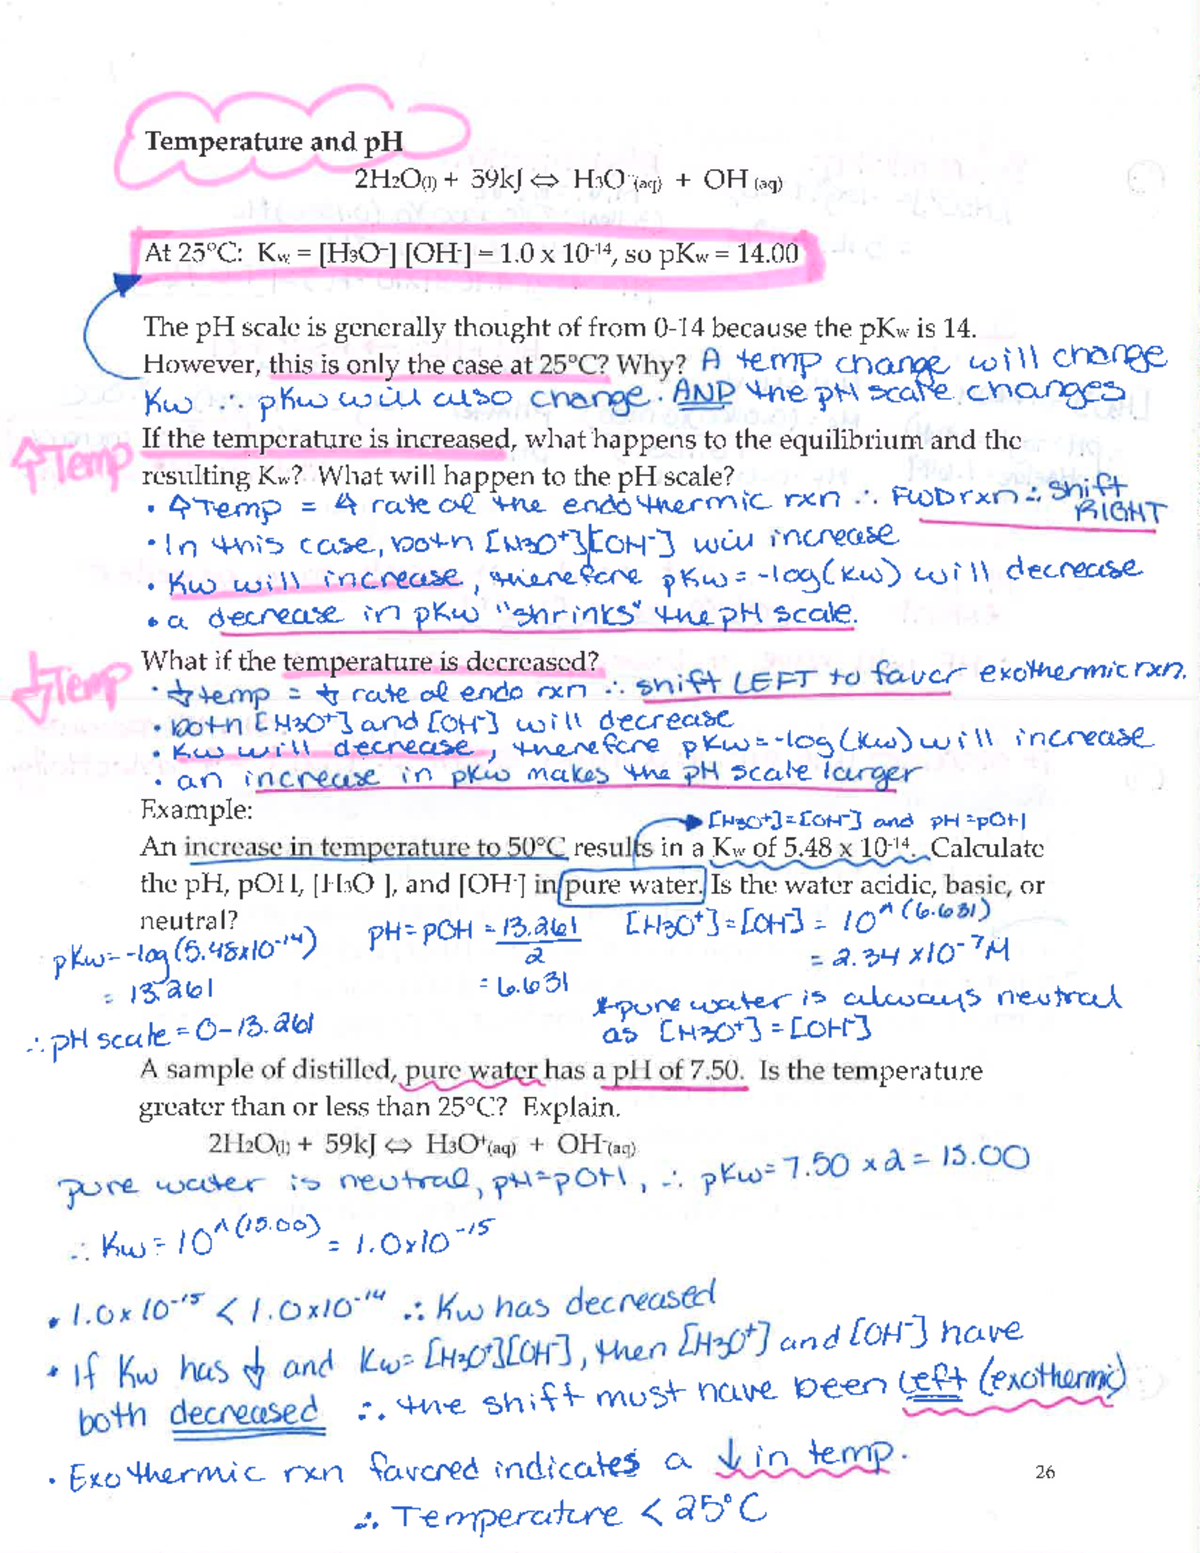 Temperature and pH
2H2O(l) + 59kJ ⇔ H3O⁻(aq) + OH (aq)
At 25°C: Kw = [H3O⁻] [OH⁻] = 1.0 x 10⁻¹⁴, so pKw = 14.00
The pH scale is generally thought of from 0-14 because the pKw is 14.
However, this is only the case at 25°C? Why? A temp change will change
Kw ∴ pKw will also change. AND the pH scale changes.
↑Temp
If the temperature is increased, what happens to the equilibrium and the
resulting Kw? What will happen to the pH scale?
• ↑Temp = ↑ rate of the endothermic rxn ∴ FWD rxn ∴ shift RIGHT
• In this case, both [H3O⁺][OH⁻] will increase
• Kw will increase, therefore pKw = -log(Kw) will decrease
• a decrease in pKw "shrinks" the pH scale.
↓Temp
What if the temperature is decreased?
• ↓ temp = ↓ rate of endo rxn ∴ shift LEFT to favor exothermic rxn.
• both [H3O⁺] and [OH⁻] will decrease
• Kw will decrease, therefore pKw = -log(Kw) will increase
• an increase in pKw makes the pH scale larger
Example:
[H3O⁺] = [OH⁻] and pH = pOH
An increase in temperature to 50°C results in a Kw of 5.48 x 10⁻¹⁴. Calculate
the pH, pOH, [H3O ], and [OH⁻] in pure water. Is the water acidic, basic, or
neutral?
pKw = -log(5.48x10⁻¹⁴)
= 13.261
∴ pH scale = 0-13.261
pH = pOH = 13.261
2
= 6.631
[H3O⁺] = [OH⁻] = 10^(6.631)
= 2.34 x10⁻⁷M
*pure water is always neutral
as [H3O⁺] = [OH⁻]
A sample of distilled, pure water has a pH of 7.50. Is the temperature
greater than or less than 25°C? Explain.
2H2O(l) + 59kJ ⇔ H3O⁺(aq) + OH⁻(aq)
pure water is neutral, pH = pOH, ∴ pKw = 7.50 x 2 = 15.00
∴ Kw = 10^(15.00) = 1.0x10⁻¹⁵
• 1.0x10⁻¹⁵ < 1.0x10⁻¹⁴ ∴ Kw has decreased
• If Kw has ↓ and Kw = [H3O⁺][OH⁻], then [H3O⁺] and [OH⁻] have
both decreased ∴ the shift must have been left (exothermic)
• Exothermic rxn favored indicates a ↓ in temp.
26
∴ Temperature < 25°C